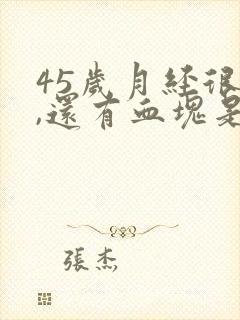 45歲月經很
,還有血塊是
張杰